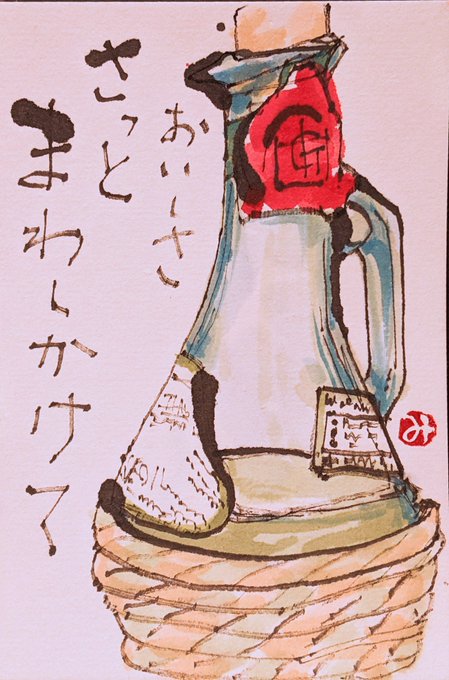 おいしさ
さっと
まわしかけて
み